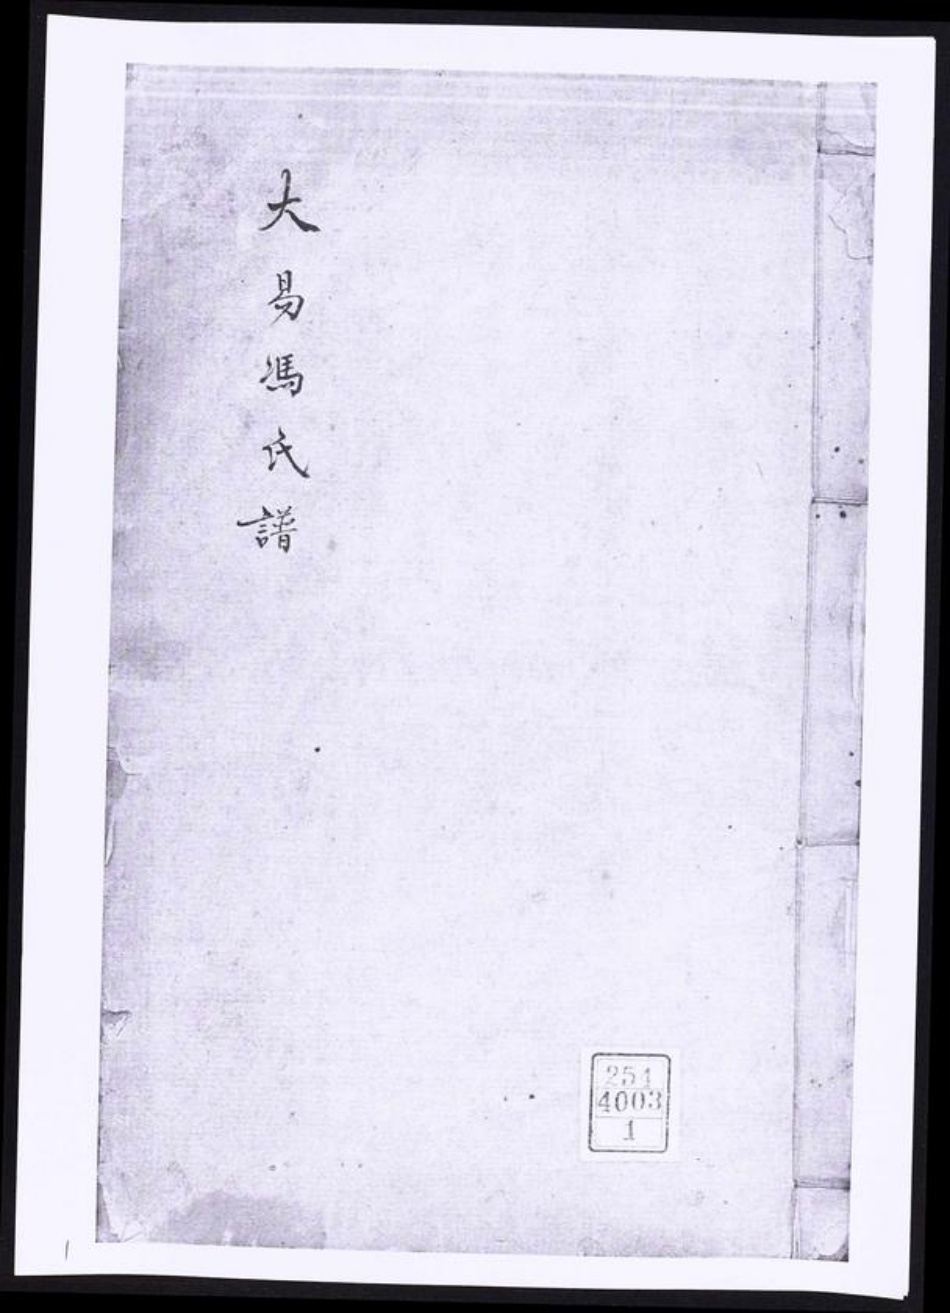 大易馮氏譜
251
4003
1